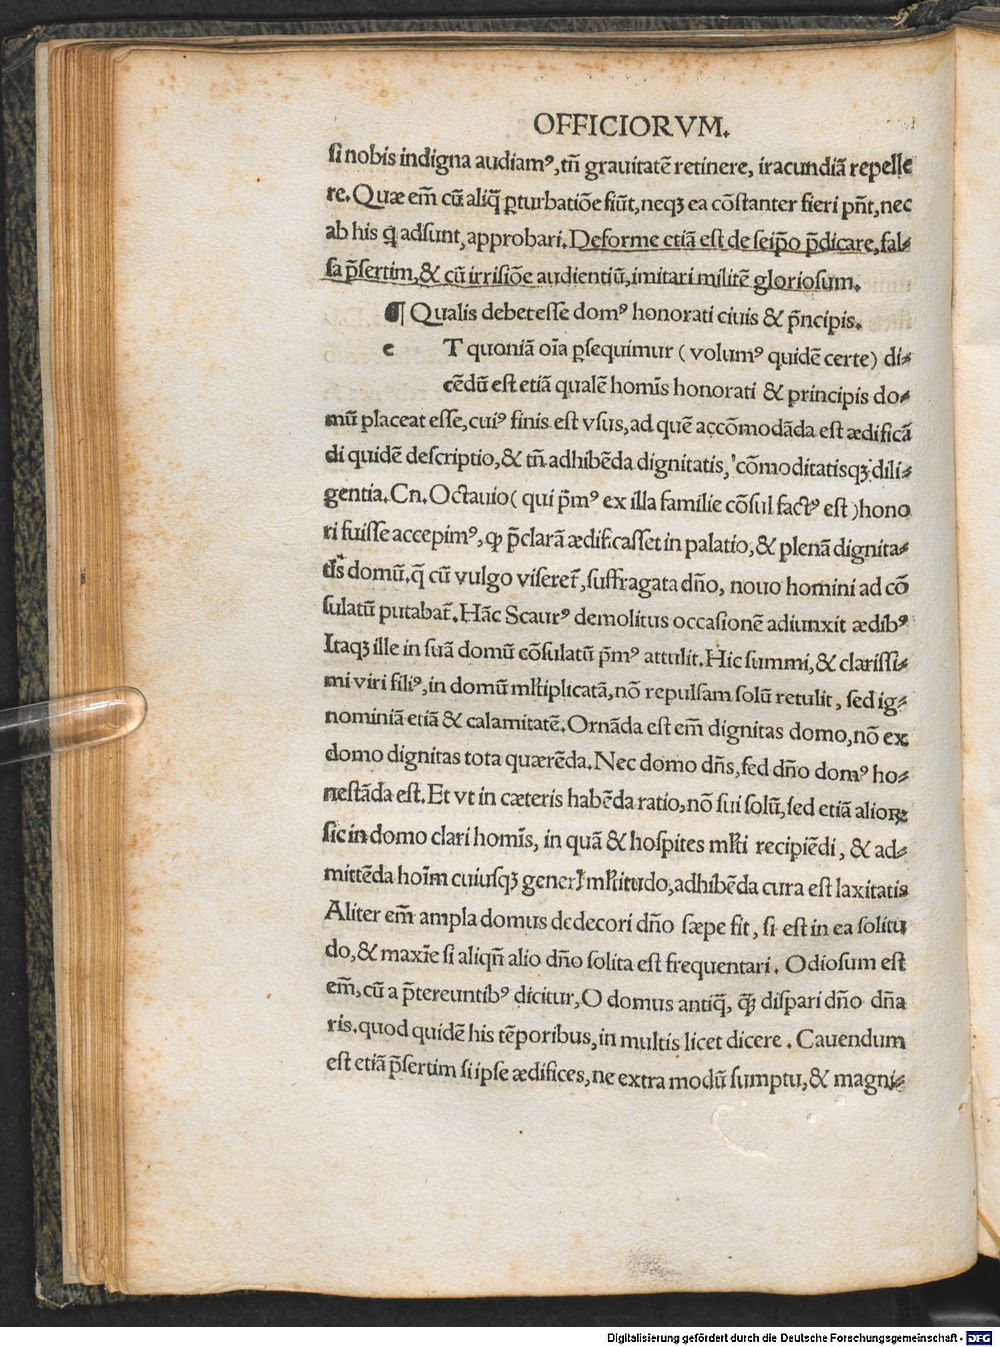 OFFICIORVM.
ſi nobis indigna audiamꝰ, tn̄ grauitatē retinere, iracundiā repelle
re. Quæ em̄ cū aliq̄ ꝑturbatiōe fiūt, neqꝫ ea cōſtanter fieri pn̄t, nec
ab his q̄ adſunt, approbari. Deforme etiā eſt de ſeip̄o p̄dicare, fal-
ſa p̄ſertim, & cū irriſiōe audientiū, imitari militē glorioſum.
¶ Qualis debet eſſe domꝰ honorati ciuis & p̄ncipis.
e T quoniā oīa ꝑſequimur ( volumꝰ quidē certe) di-
cēdū eſt etiā qualē homīs honorati & principis do-
mū placeat eſſe, cuiꝰ finis eſt vſus, ad quē accōmodāda eſt ædificā
di quidē deſcriptio, & tn̄ adhibēda dignitatis, cōmoditatisqꝫ dili-
gentia. Cn. Octauio ( qui p̄mꝰ ex illa familie cōſul factꝰ eſt ) hono
ri fuiſſe accepimꝰ, ꝙ p̄clarā ædificaſſet in palatio, & plenā dignita-
t̄s domū. q̄ cū vulgo viſeret̄, ſuffragata dn̄o, nouo homini ad cō
ſulatū putabat̄. Hāc Scaurꝰ demolitus occaſionē adiunxit ædibꝰ
Itaqꝫ ille in ſuā domū cōſulatū p̄mꝰ attulit. Hic ſummi, & clariſſi-
mi viri filiꝰ, in domū ml̄tiplicatā, nō repulſam ſolū retulit, ſed ig-
nominiā etiā & calamitatē. Ornāda eſt em̄ dignitas domo, nō ex
domo dignitas tota quærēda. Nec domo dn̄s, ſed dn̄o domꝰ ho-
neſtāda eſt. Et vt in cæteris habēda ratio, nō ſui ſolū, ſed etiā alioꝝ:
ſic in domo clari homīs, in quā & hoſpites ml̄ti recipiēdi, & ad-
mittēda hoīm cuiuſqꝫ generꝭ ml̄titudo, adhibēda cura eſt laxitatis
Aliter em̄ ampla domus dedecori dn̄o ſæpe fit, ſi eſt in ea ſolitu
do, & maxīe ſi aliqn̄ alio dn̄o ſolita eſt frequentari. Odioſum eſt
em̄, cū a p̄tereuntibꝰ dicitur, O domus antiq̄, q̄ꝫ diſpari dn̄o dn̄a
ris. quod quidē his tēporibus, in multis licet dicere. Cauendum
eſt etiā p̄ſertim ſi ipſe ædifices, ne extra modū ſumptu, & magni-
Digitalisierung gefördert durch die Deutsche Forschungsgemeinschaft - DFG